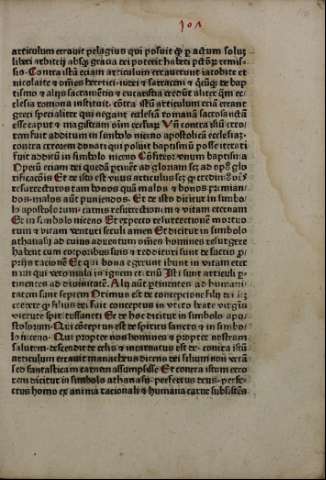 101
articulum erravit pelagius qui posuit ꝙ per actum solum
liberi arbitrii absque gratia dei poterit haberi peccatorum remis-
sio. Contra istum eciam articulum erraverunt iacobite et
nicolaite et omnes heretici iudei et sarraceni et quicunque de bap
tismo et aliis sacramentis et eucaristia credunt aliter quam ec
clesia romana instituit. contra istum articulum eciam errant
greci specialiter qui negant ecclesiam romanam sacrosanctam
esse caput et magistram omnium ecclesiarum. Unde contra istum erro
rem fuit additum in simbolo niceno apostolicam ecclesiam.
contra errorem donati qui posuit baptismum posse iterari
fuit additum in simbolo niceno Confiteor unum baptisma
Opus eciam dei quedam pertinent ad gloriam
glorificationis Et de isto est unus articulus
resurrecturos tam bonos quam malos et bonos premian
dos. malos autem puniendos. Et de isto dicitur in simbo
lo apostolorum. carnis resurrectionem et vitam eternam
Et in simbolo niceno Et expecto resurrectionem mortuo
rum et vitam venturi seculi amen Et dicitur in simbolo
athanasii ad cuius adventum omnes homines resurgere
habent cum corporibus suis et reddituri sunt de factis propriis
rationem Et qui bona egerunt ibunt in vitam eter
nam qui vero mala in ignem eternum Isti sunt articuli per
tinentes ad divinitatem. Alii autem pertinentes ad humani
tatem sunt septem Primus est de conceptione filii dei
credere quod iesus dei fuit conceptus in utero beate virginis
virtute spiritus sancti Et de hoc dicitur in simbolo apo
stolorum. Qui conceptus est de spiritu sancto et in simbo
lo niceno. Qui propter nos homines et propter nostram
salutem. descendit de celis et incarnatus est de. contra istum
articulum erravit manicheus dicens dei filium non veram
sed fantasticam carnem assumpsisse Et contra istum erro
rem dicitur in simbolo athanasii. perfectus deus. perfe
ctus homo ex anima rationali et humana carne subsistens